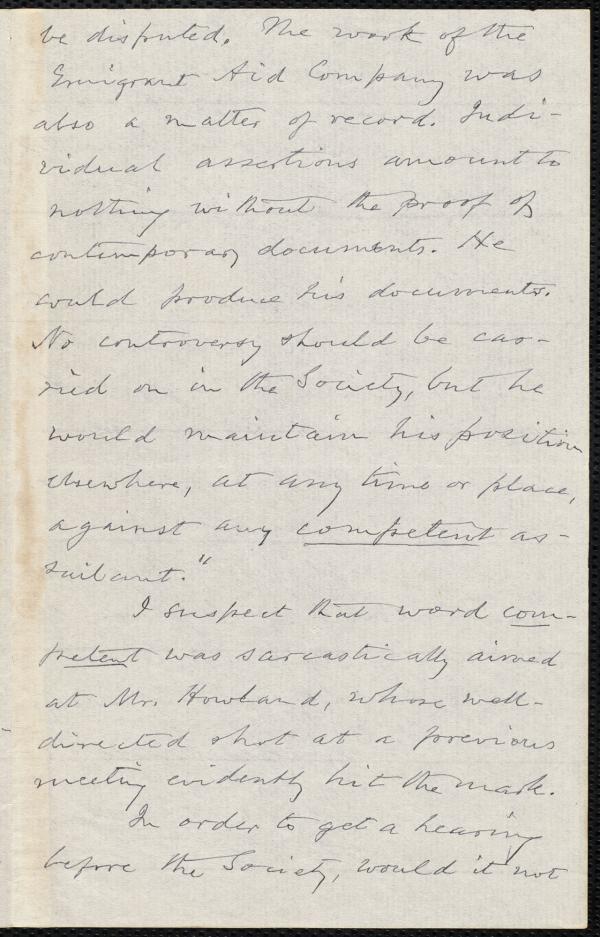 be disputed. The work of the
Emigrant Aid Company was
also a matter of record. Indi-
vidual assertions amount to
nothing without the proof of
contemporary documents. He
could produce his documents.
No controversy should be car-
ried on in the Society, but he
would maintain his position
elsewhere, at any time or place,
against any competent as-
sailant."
I suspect that word com-
petent was sarcastically aimed
at Mr. Howland, whose well-
directed shot at a previous
meeting evidently hit the mark.
In order to get a hearing
before the Society, would it not